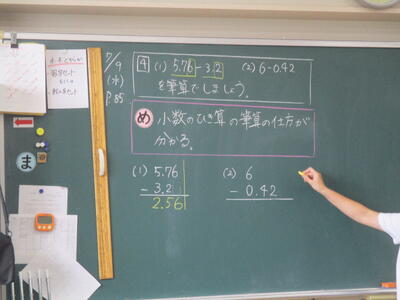 7/9
(水)
P.85
4 (1) 5.76-3.2 (2) 6-0.42
を筆算でしましょう。
め 小数のひき算の筆算の仕方が
分かる。
(1) 5.76
- 3.2
2.56
(2) 6
- 0.42
ま